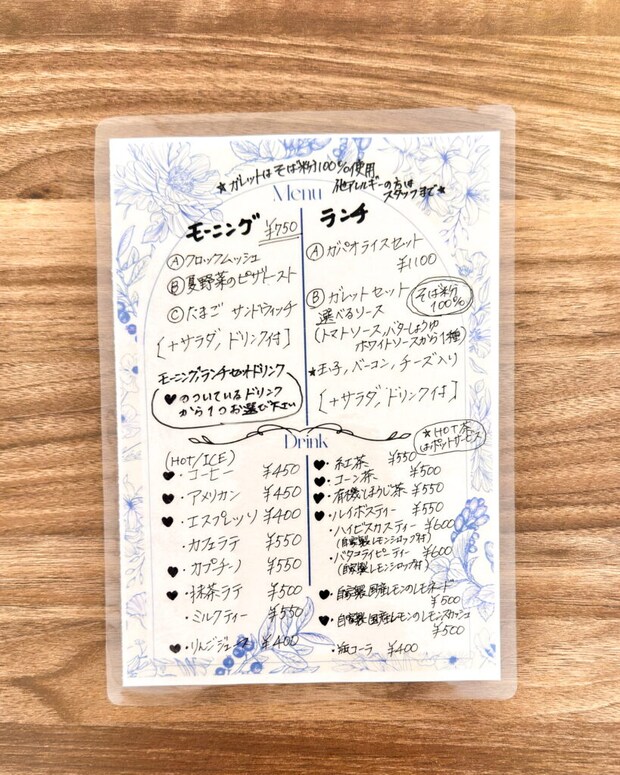 ★ガレットはそば粉100%使用
他アレルギーの方は
スタッフまで★
Menu
モーニング ¥750
Ⓐクロックムッシュ
Ⓑ夏野菜のピザトースト
Ⓒたまごサンドウィッチ
[+サラダ/ドリンク付]
モーニング、ランチセットドリンク
♥のついているドリンク
から1つお選び下さい
ランチ
Ⓐガパオライスセット
¥1100
Ⓑガレットセット
そば粉
100%
選べるソース
(トマトソース,バターしょうゆ
ホワイトソースから1種)
★玉子,ベーコン,チーズ入り
[+サラダ/ドリンク付]
Drink
(HOT/ICE)
♥・コーヒー ¥450
♥・アメリカン ¥450
♥・エスプレッソ ¥400
・カフェラテ ¥550
♥・カプチーノ ¥550
♥・抹茶ラテ ¥500
・ミルクティー ¥550
♥・りんごジュース ¥400
★HOT茶
はポットサービス
♥・紅茶 ¥550
♥・コーン茶 ¥500
♥・有機ほうじ茶 ¥550
♥・ルイボスティー ¥550
・ハイビスカスティー ¥600
(自家製レモンシロップ付)
・バタフライピーティー ¥600
(自家製レモンシロップ付)
♥・自家製国産レモンのレモネード
¥500
♥・自家製国産レモンのレモンスカッシュ
¥500
・瓶コーラ ¥400